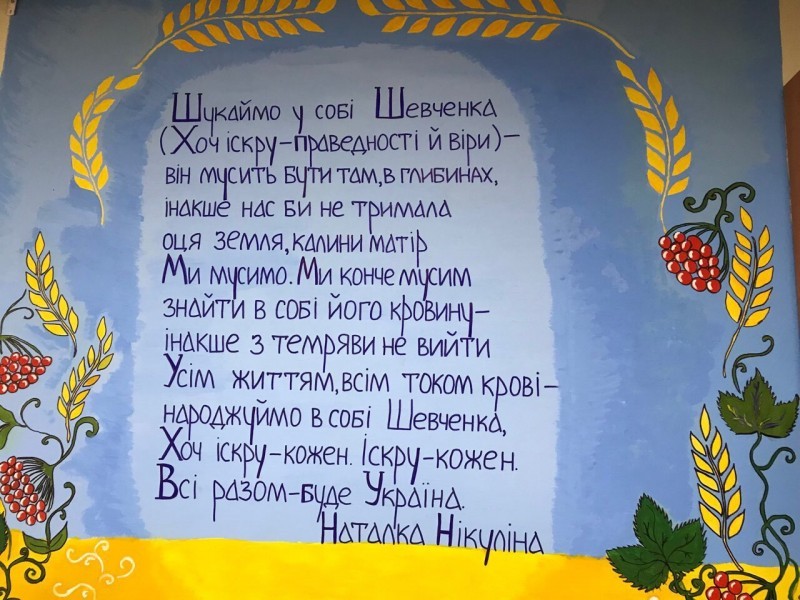 Шукаймо у собі Шевченка
(Хоч іскру-праведності й віри)-
він мусить бути там, в глибинах,
інакше нас би не тримала
оця земля, калини матір
Ми мусимо. Ми конче мусим
знайти в собі його кровину-
інакше з темряви не вийти
Усім життям, всім током крові-
народжуймо в собі Шевченка,
Хоч іскру-кожен. Іскру-кожен.
Всі разом-буде Україна.
Наталка Нікуліна